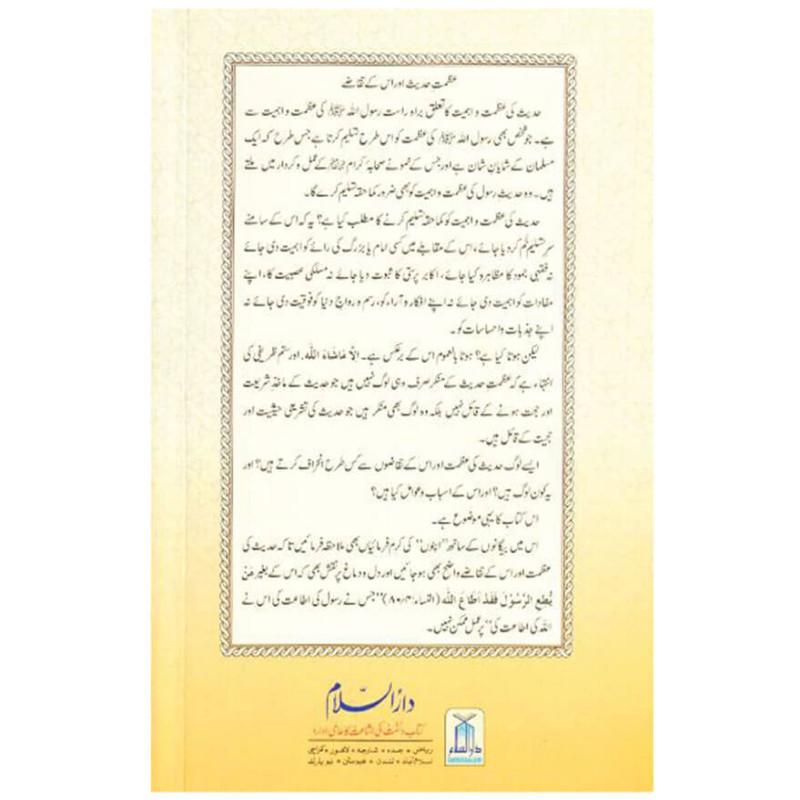 عظمتِ حدیث اور اس کے تقاضے
حدیث کی عظمت و اہمیت کا تعلق براہِ راست رسول اللہ ﷺ کی عظمت و اہمیت سے
ہے۔ جو شخص بھی رسول اللہ ﷺ کی عظمت کو اس طرح تسلیم کرتا ہے جس طرح کہ ایک
مسلمان کے شایانِ شان ہے اور جس کے نمونے صحابہ کرام کے عمل و کردار میں ملتے
ہیں۔ وہ حدیثِ رسول کی عظمت و اہمیت کو بھی ضرور کماحقہ تسلیم کرے گا۔
حدیث کی عظمت و اہمیت کو کماحقہ تسلیم کرنے کا مطلب کیا ہے؟ یہ کہ اس کے سامنے
سرِ تسلیم خم کر دیا جائے، اس کے مقابلے میں کسی امام یا بزرگ کی رائے کو اہمیت دی جائے
نہ فقہی جمود کا مظاہرہ کیا جائے، اکابر پرستی کا ثبوت دیا جائے نہ مسلکی عصبیت کا، اپنے
مفادات کو اہمیت دی جائے نہ اپنے افکار و آراء کو، رسم و رواج دنیا کو فوقیت دی جائے نہ
اپنے جذبات و احساسات کو۔
لیکن ہوتا کیا ہے؟ ہوتا بالعموم اس کے برعکس ہے۔ الا ماشاء اللہ۔ اور ستم ظریفی کی
انتہاء ہے کہ عظمتِ حدیث کے منکر صرف وہی لوگ نہیں ہیں جو حدیث کے ماخذِ شریعت
اور حجت ہونے کے قائل نہیں بلکہ وہ لوگ بھی منکر ہیں جو حدیث کی تشریعی حیثیت اور
حجیت کے قائل ہیں۔
ایسے لوگ حدیث کی عظمت اور اس کے تقاضوں سے کس طرح انحراف کرتے ہیں؟ اور
یہ کون لوگ ہیں؟ اور اس کے اسباب و عوامل کیا ہیں؟
اس کتاب کا یہی موضوع ہے۔
اس میں بیگانوں کے ساتھ "اپنوں" کی کرم فرمائیاں بھی ملاحظہ فرمائیں تاکہ حدیث کی
عظمت اور اس کے تقاضے واضح بھی ہو جائیں اور دل و دماغ پر نقش بھی کہ اس کے بغیر مَنْ
يُّطِعِ الرَّسُوْلَ فَقَدْ اَطَاعَ اللّٰه (النساء: ۸۰/۴) "جس نے رسول کی اطاعت کی اس نے
اللہ کی اطاعت کی" پر عمل ممکن نہیں۔
دارُالسّلام
کتاب و سنت کی اشاعت کا عالمی ادارہ
ریاض • جدہ • شارجہ • لاہور • کراچی
اسلام آباد • لندن • ہیوسٹن • نیویارک
دارالسلام
DARUSSALAM